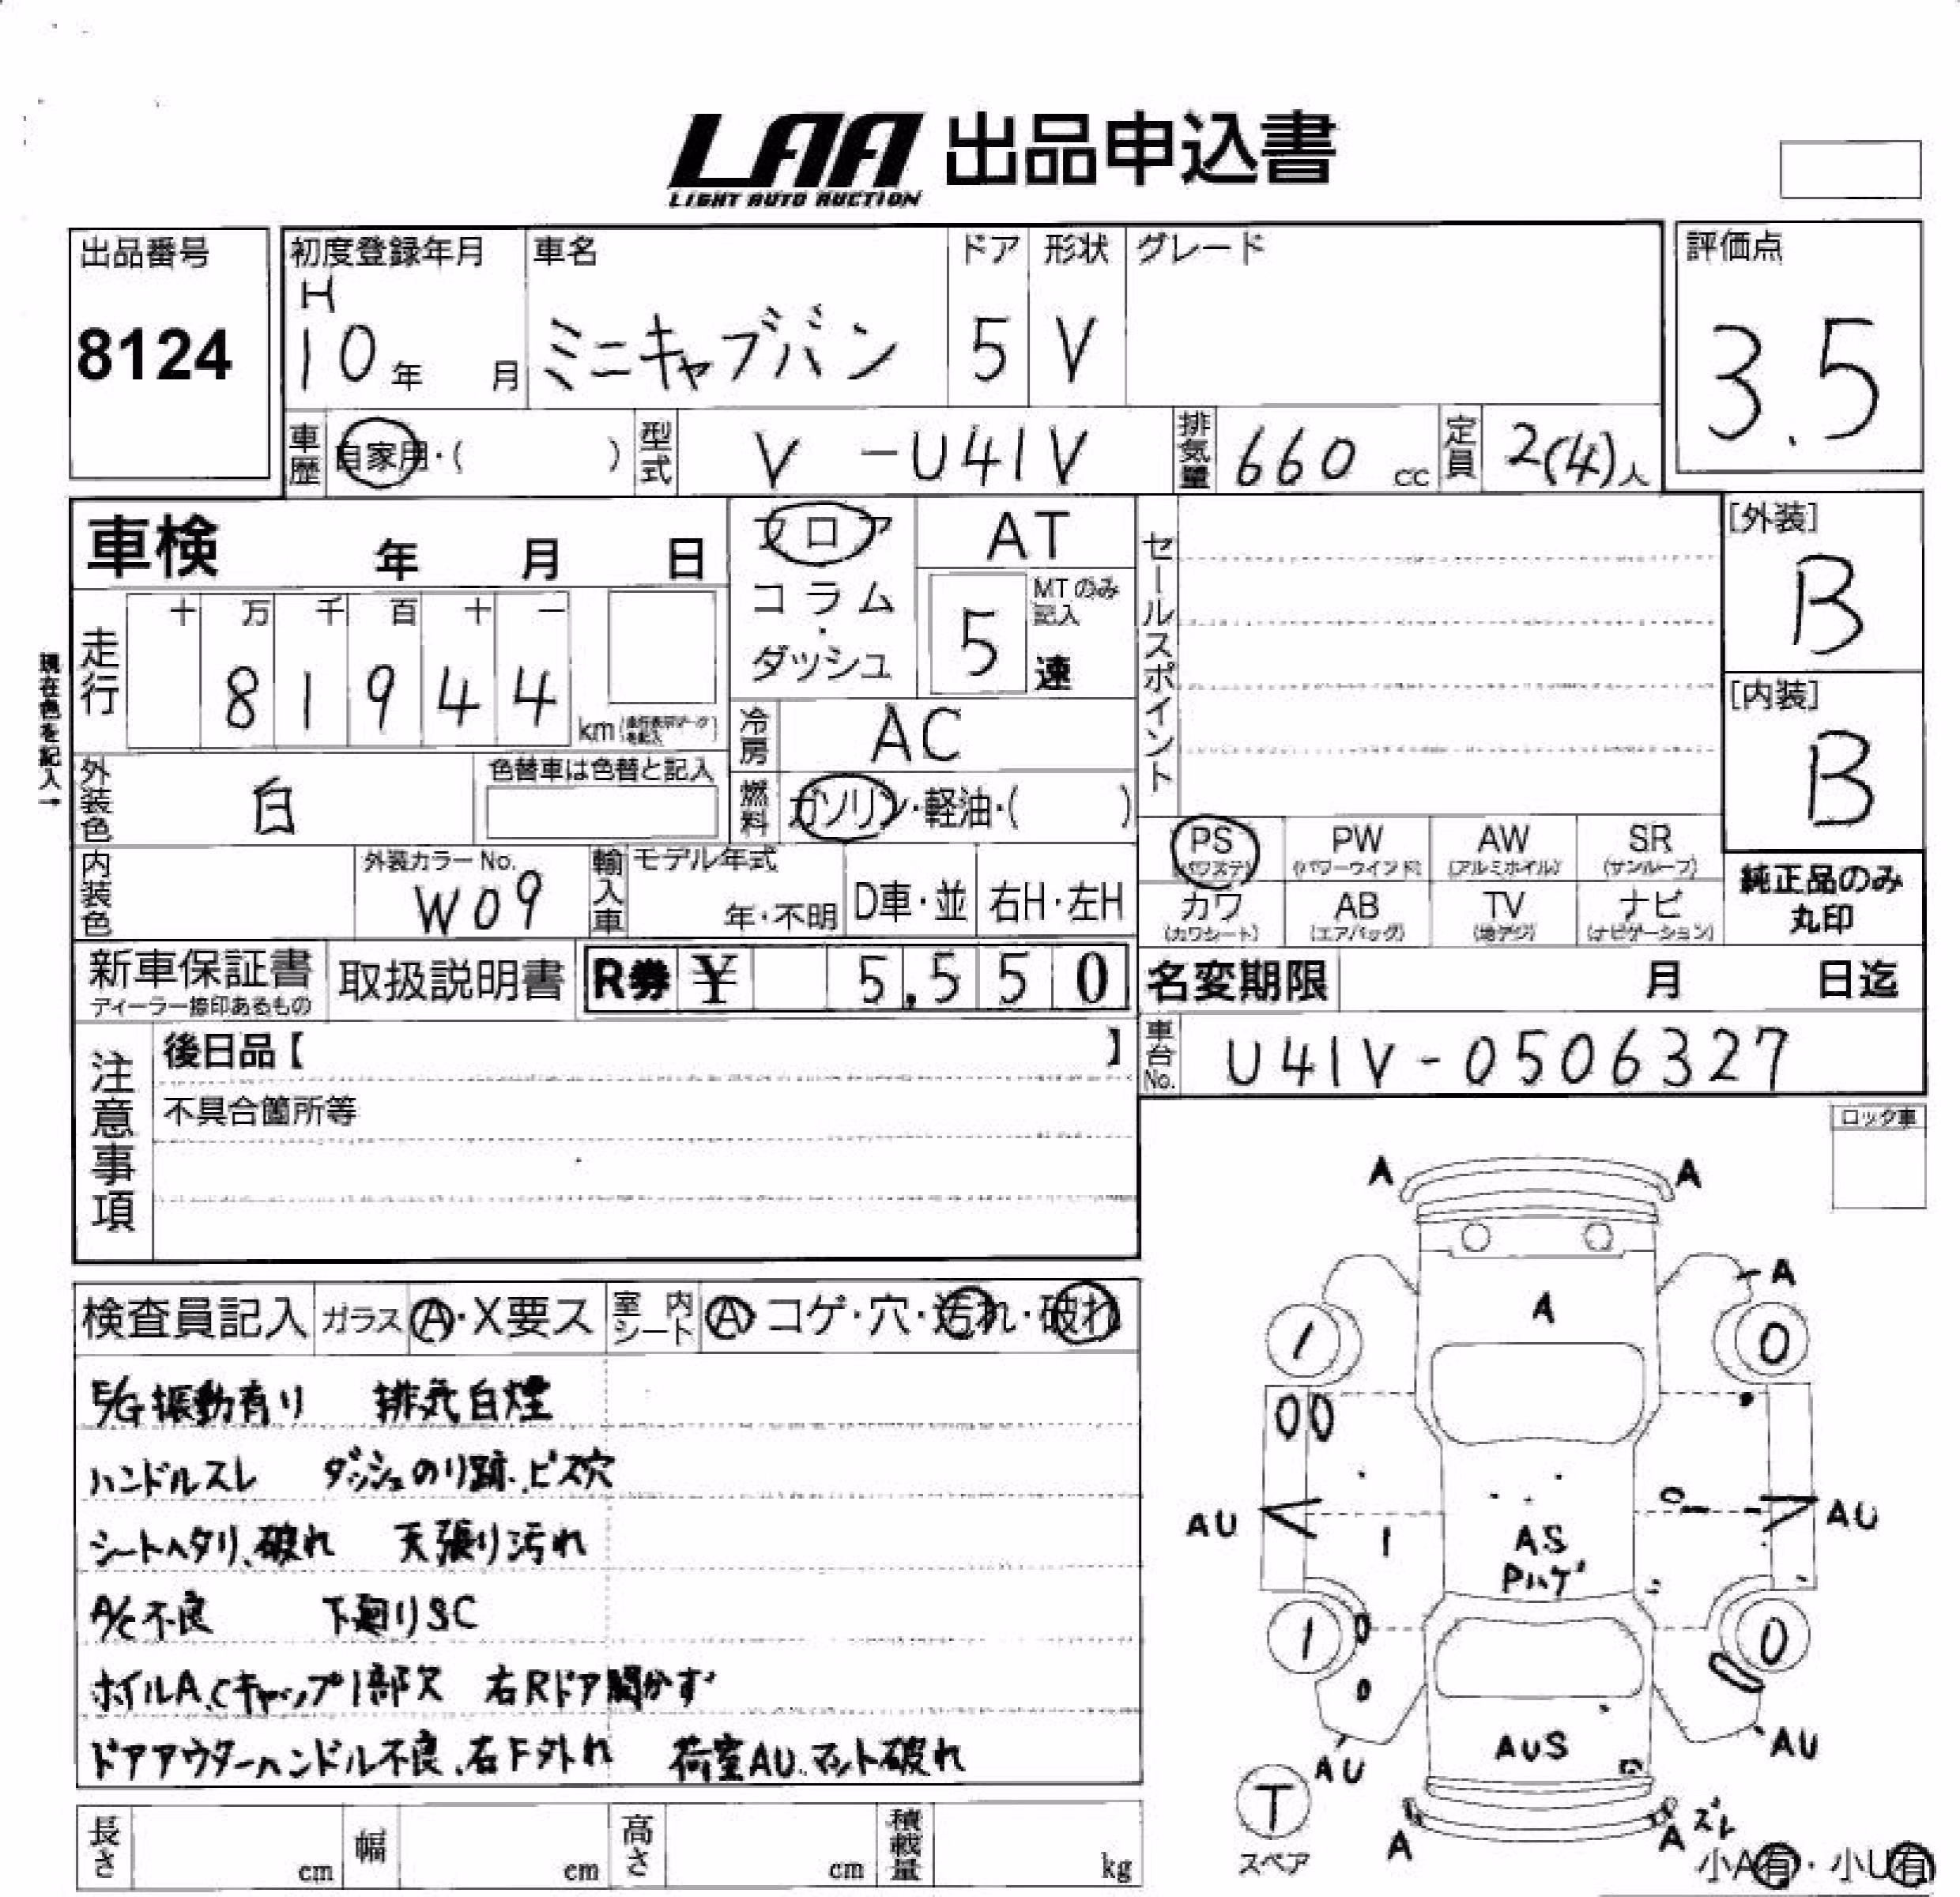 LAA 出品申込書
LIGHT AUTO AUCTION
出品番号
8124
初度登録年月
H
10年 月
車名
ミニキャブバン
ドア
5
形状
V
グレード
評価点
3.5
車歴 自家用・( )
型式 V -U41V
排気量 660 cc
定員 2(4)人
車検 年 月 日
フロア
コラム
・
ダッシュ
AT
MTのみ
記入
5 速
セールスポイント
[外装]
B
[内装]
B
現在色を記入→
走行
十 万 千 百 十 一
8 1 9 4 4
km
冷房 AC
燃料 ガソリン・軽油・( )
外装色 白
色替車は色替と記入
内装色
外装カラーNo.
W09
輸入車
モデル年式
年・不明
D車・並
右H・左H
PS
(パワステ)
PW
(パワーウインド)
AW
(アルミホイル)
SR
(サンルーフ)
カワ
(カワシート)
AB
(エアバッグ)
TV
(地デジ)
ナビ
(ナビゲーション)
純正品のみ
丸印
新車保証書
ディーラー捺印あるもの
取扱説明書
R券 ¥ 5,550
名変期限 月 日迄
車台No. U41V-0506327
注意事項
後日品【 】
不具合箇所等
ロック車
検査員記入
ガラス A・X要ス
室内シート A コゲ・穴・汚れ・破れ
E/G振動有り 排気白煙
ハンドルスレ ダッシュのり跡、ビス穴
シートヘタリ、破れ 天張り汚れ
A/C不良 下廻りSC
ホイルA、Cキャップ1部欠 右Rドア開かず
ドアアウターハンドル不良、右F外れ 荷室AU、マット破れ
長さ cm
幅 cm
高さ cm
積載量 kg
A A
A
A
AU AU
AS
Pハゲ
AUS
AU AU
T
スペア
A
A ズレ
小A有・小U有